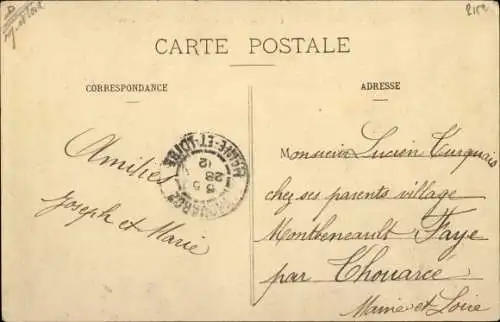 2152
CARTE POSTALE
CORRESPONDANCE
ADRESSE
MAINE-ET-LOIRE
28
5
12
Amitiés
Joseph et Marie
Monsieur Lucien Turquais
chez ses parents village
Montbeneault Faye
par Thouarcé
Maine et Loire